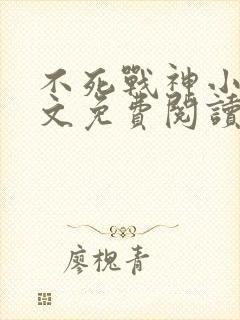 不死戰神小
文免費閱讀
廖槐青